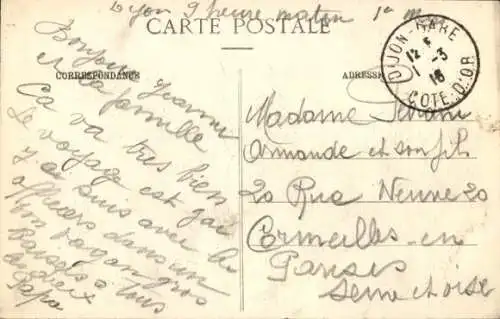 Dijon 9 heure matin 1er mars
CARTE POSTALE
CORRESPONDANCE
ADRESSE
DIJON-GARE
12
1 -3
16
COTE-D'OR
Bonjour Jeanne
et la famille
Ca va tres bien
Le voyage est gai
je suis avec les
officiers dans un
bon wagon gros
Baisers a tous
les deux
Papa
Madame
Armande et son fils
20 Rue Neuve 20
Cormeilles en
Parisis
Seine et oise